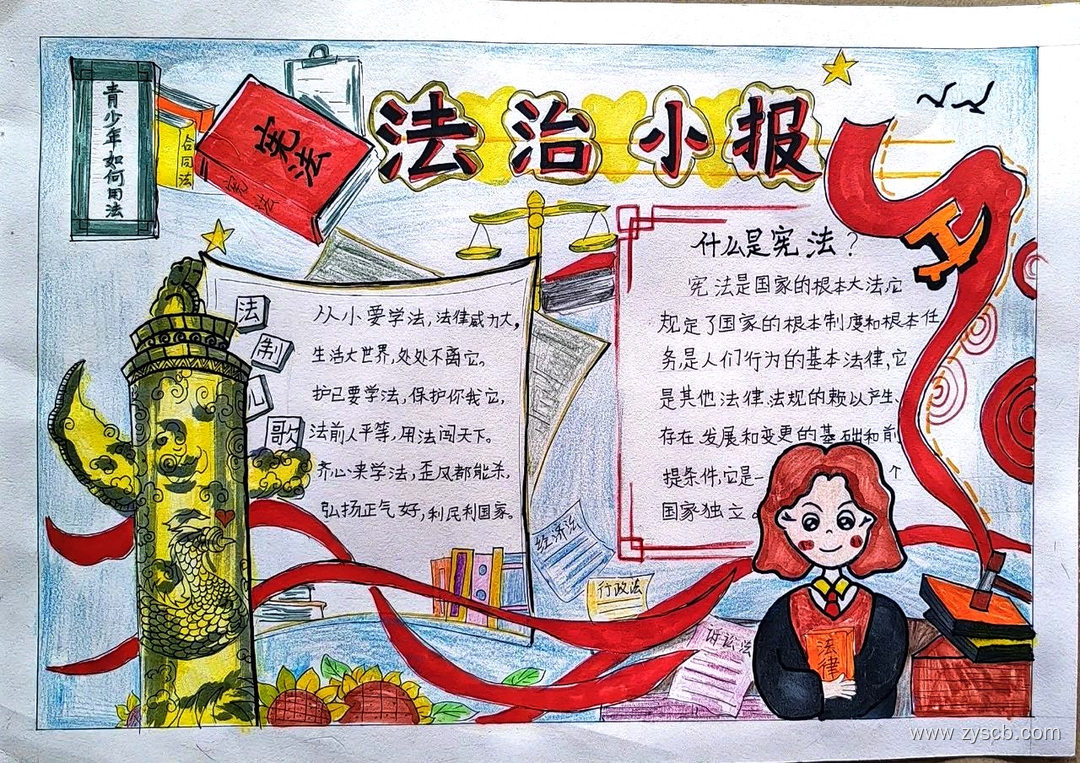 法治小报
青少年如何用法
合同法
宪法
宪法
法制儿歌
从小要学法,法律威力大,
生活大世界,处处不离它。
护己要学法,保护你我它,
法前人平等,用法闯天下。
齐心来学法,歪风都能杀,
弘扬正气好,利民利国家。
什么是宪法?
宪法是国家的根本大法,它
规定了国家的根本制度和根本任
务,是人们行为的基本法律,它
是其他法律法规的赖以产生、
存在发展和变更的基础和前
提条件,它是一个
国家独立。
经济法
行政法
诉讼法
法律
www.zyscb.com